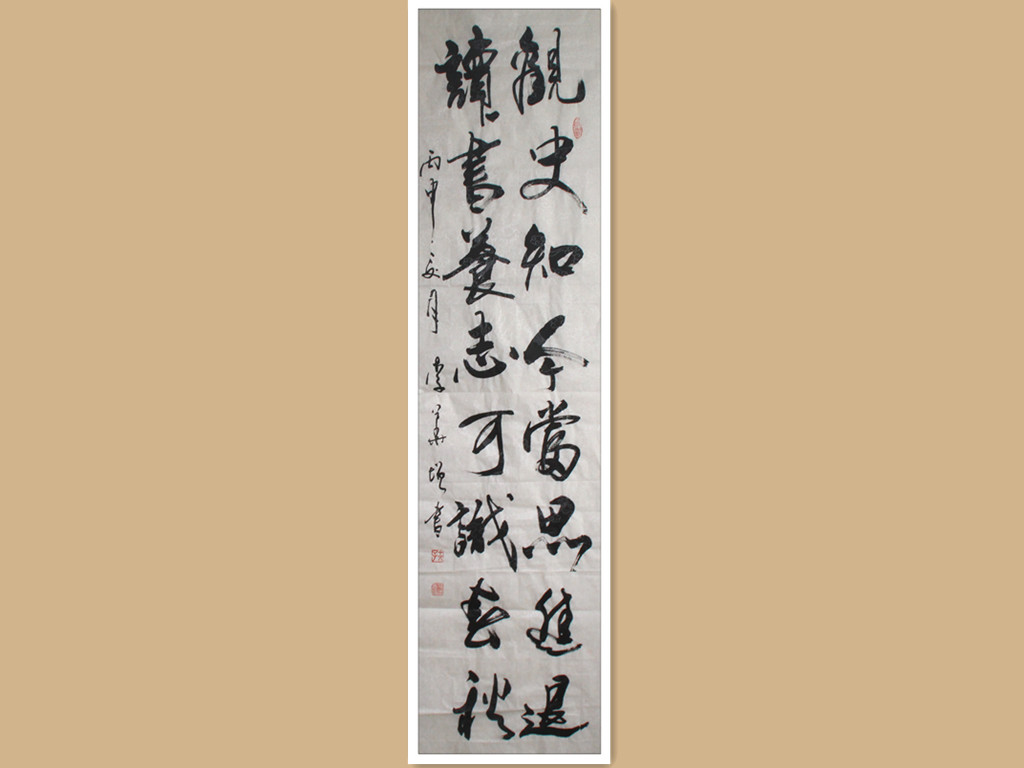 觀史知今當思進退
讀書養志可識春秋
丙申之夏月李華增書